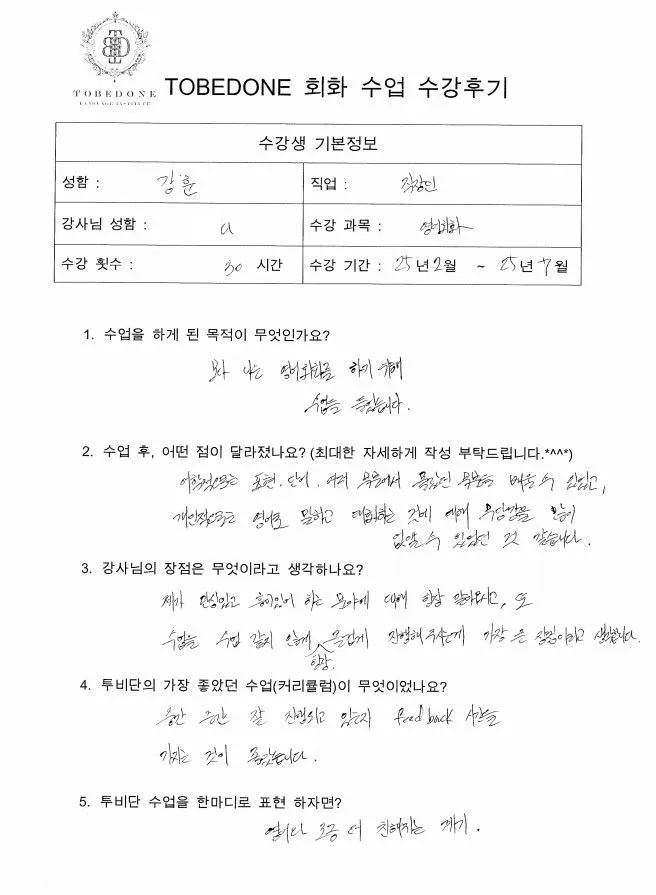 TOBEDONE
LANGUAGE INSTITUTE
TOBEDONE 회화 수업 수강후기
수강생 기본정보
성함 : 김훈 직업 : 직장인
강사님 성함 : 수강 과목 : 영어회화
수강 횟수 : 30 시간 수강 기간 : 25년 2월 ~ 25년 7월
1. 수업을 하게 된 목적이 무엇인가요?
보다 나은 영어회화를 하기 위해
수업을 들었습니다.
2. 수업 후, 어떤 점이 달라졌나요? (최대한 자세하게 작성 부탁드립니다.*^^*)
어학적으로는 표현, 단어, 여러 부분에서 폭넓은 부분을 배울 수 있었고,
개인적으로 영어로 말하고 대화하는 것에 대해 부담감을 많이
없앨 수 있었던 것 같습니다.
3. 강사님의 장점은 무엇이라고 생각하나요?
제가 관심있고 흥미있어 하는 분야에 대해 항상 알아봐주시고, 또
수업을 수업 같지 않게 항상 즐겁게 진행해 주시는게 가장 큰 장점이라고 생각합니다.
4. 투비단의 가장 좋았던 수업(커리큘럼)이 무엇이었나요?
중간 중간 잘 진행되고 있는지 feedback 시간을
가지는 것이 좋았습니다.
5. 투비단 수업을 한마디로 표현 하자면?
영어와 조금 더 친해지는 계기.